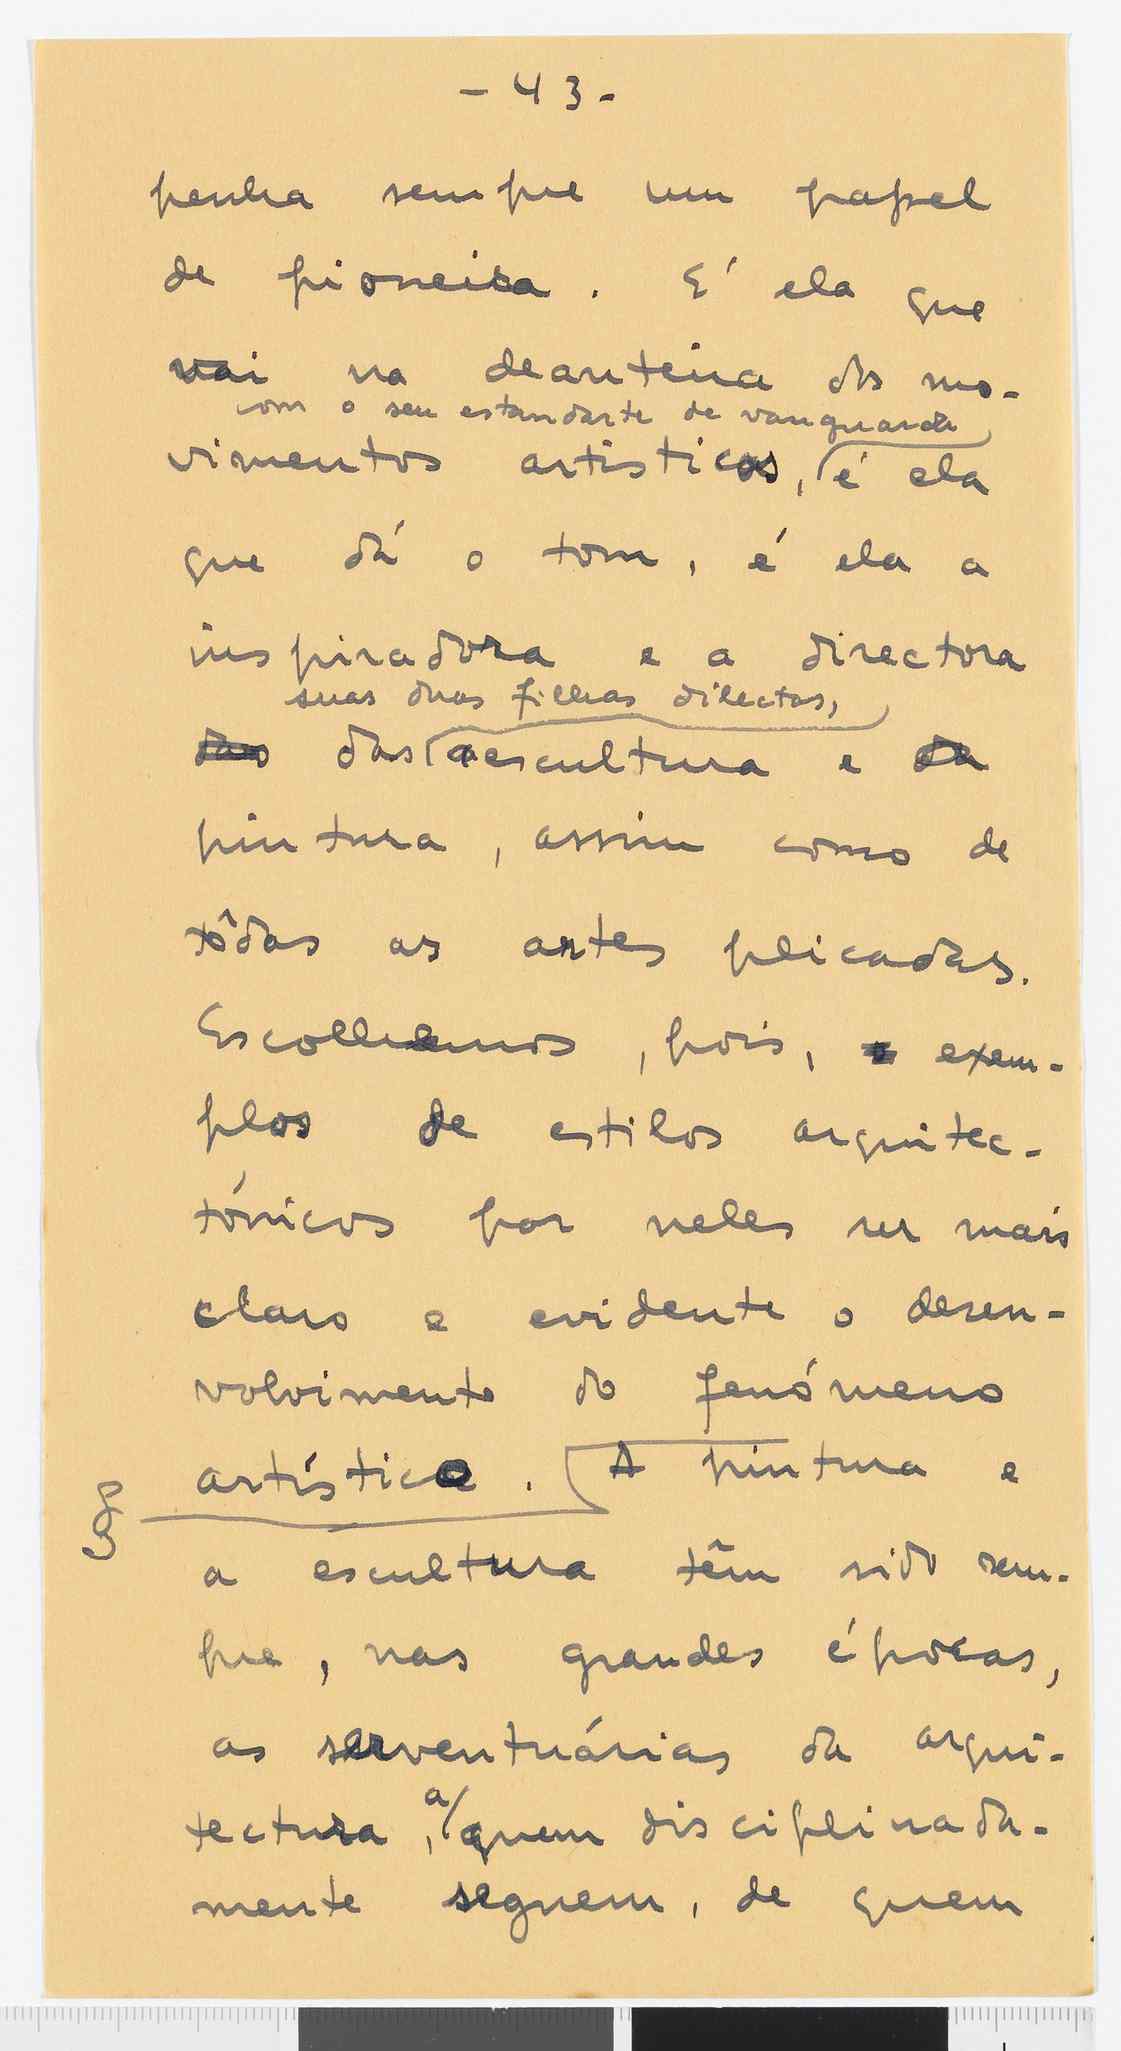 - 43 -
penha sempre um papel
de pioneira. E' ela que
vai na deanteira dos mo-
com o seu estandarte de vanguarda
vimentos artísticos, é ela
que dá o tom, é ela a
inspiradora e a directora
suas duas filhas dilectas,
das das a escultura e da
pintura, assim como de
tôdas as artes plicadas.
Escolhemos, pois, exem-
plos de estilos arquitec-
tónicos por neles ser mais
claro e evidente o desen-
volvimento do fenómeno
artístico. A pintura e
a escultura têm sido sem-
pre, nas grandes épocas,
as serventuárias da arqui-
a
tectura, quem disciplinada-
mente seguem, de quem